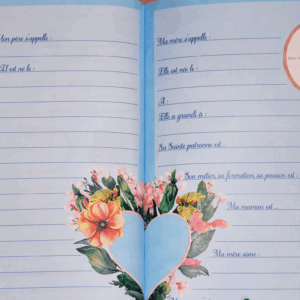 Mon père s'appelle :
Il est né le :
Ma mère s'appelle :
Elle est née le :
A :
Elle a grandi à :
Sa Sainte patronne est :
Son métier, sa formation, sa passion est :
Ma maman est ...
Ma mère aime :